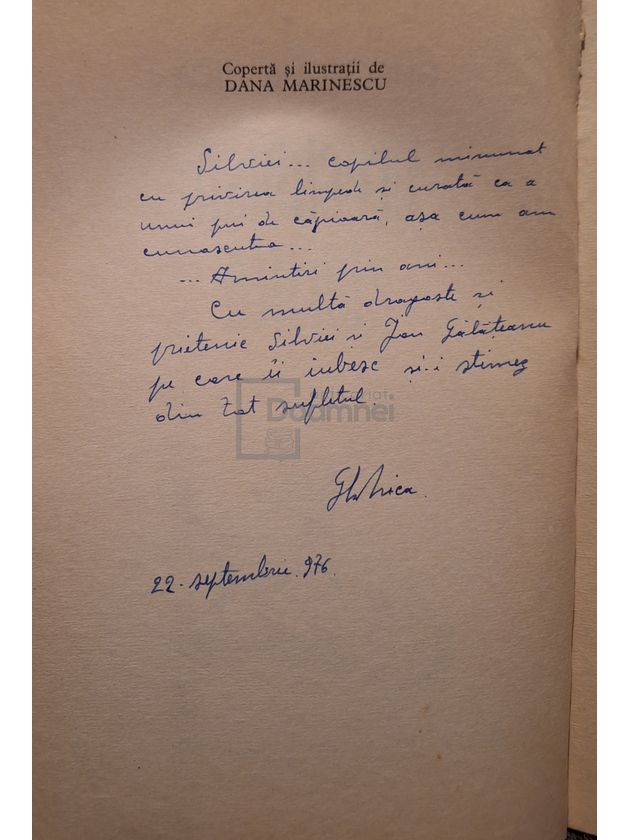 Copertă și ilustrații de
DANA MARINESCU
Silviei... copilul minunat
cu privirea limpede și curată ca a
unui pui de căprioară, așa cum am
cunoscut-o...
... Amintiri prin ani...
Cu multă dragoste și
prietenie Silviei și Jan Gălățeanu
pe care îi iubesc și-i stimez
din tot sufletul.
22. septembrie. 976.